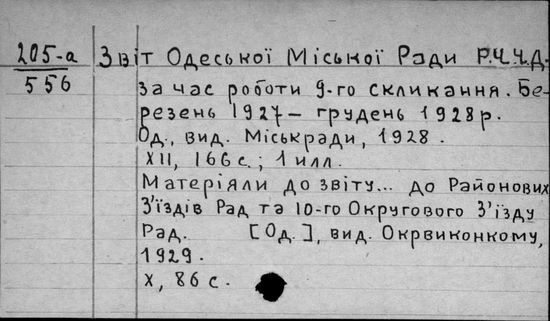 205-а
556
Звіт Одеської Міської Ради Р.Ч.Ч.Д.
за час роботи 9-го скликання. Бе-
резень 1927 – грудень 1928 р.
Од., вид. Міськради, 1928.
XII, 166 с.; 1 илл.
Матеріяли до звіту... до Районових
З'їздів Рад та 10-го Округового З'їзду
Рад. [Од.], вид. Окрвиконкому,
1929.
X, 86 с.